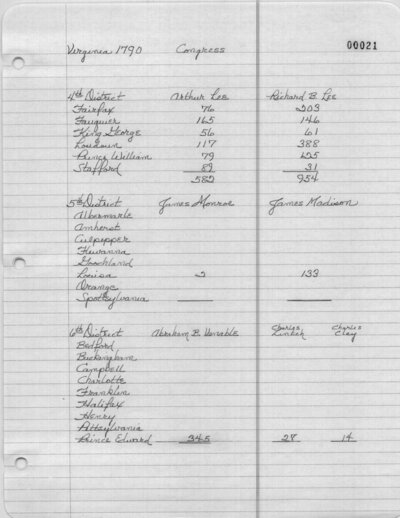 00021
Virginia 1790 Congress
4th District Arthur Lee Richard B. Lee
Fairfax 76 203
Fauquier 165 146
King George 56 61
Loudoun 117 388
Prince William 79 125
Stafford 89 31
582 954
5th District James Monroe James Madison
Albermarle
Amherst
Culpepper
Fluvanna
Goochland
Louisa 2 133
Orange
Spotsylvania
6th District Abraham B. Venable Charles Charles Clay
Bedford
Buckingham
Campbell
Charlotte
Franklin
Halifax
Henry
Pittsylvania
Prince Edward 345 27 14